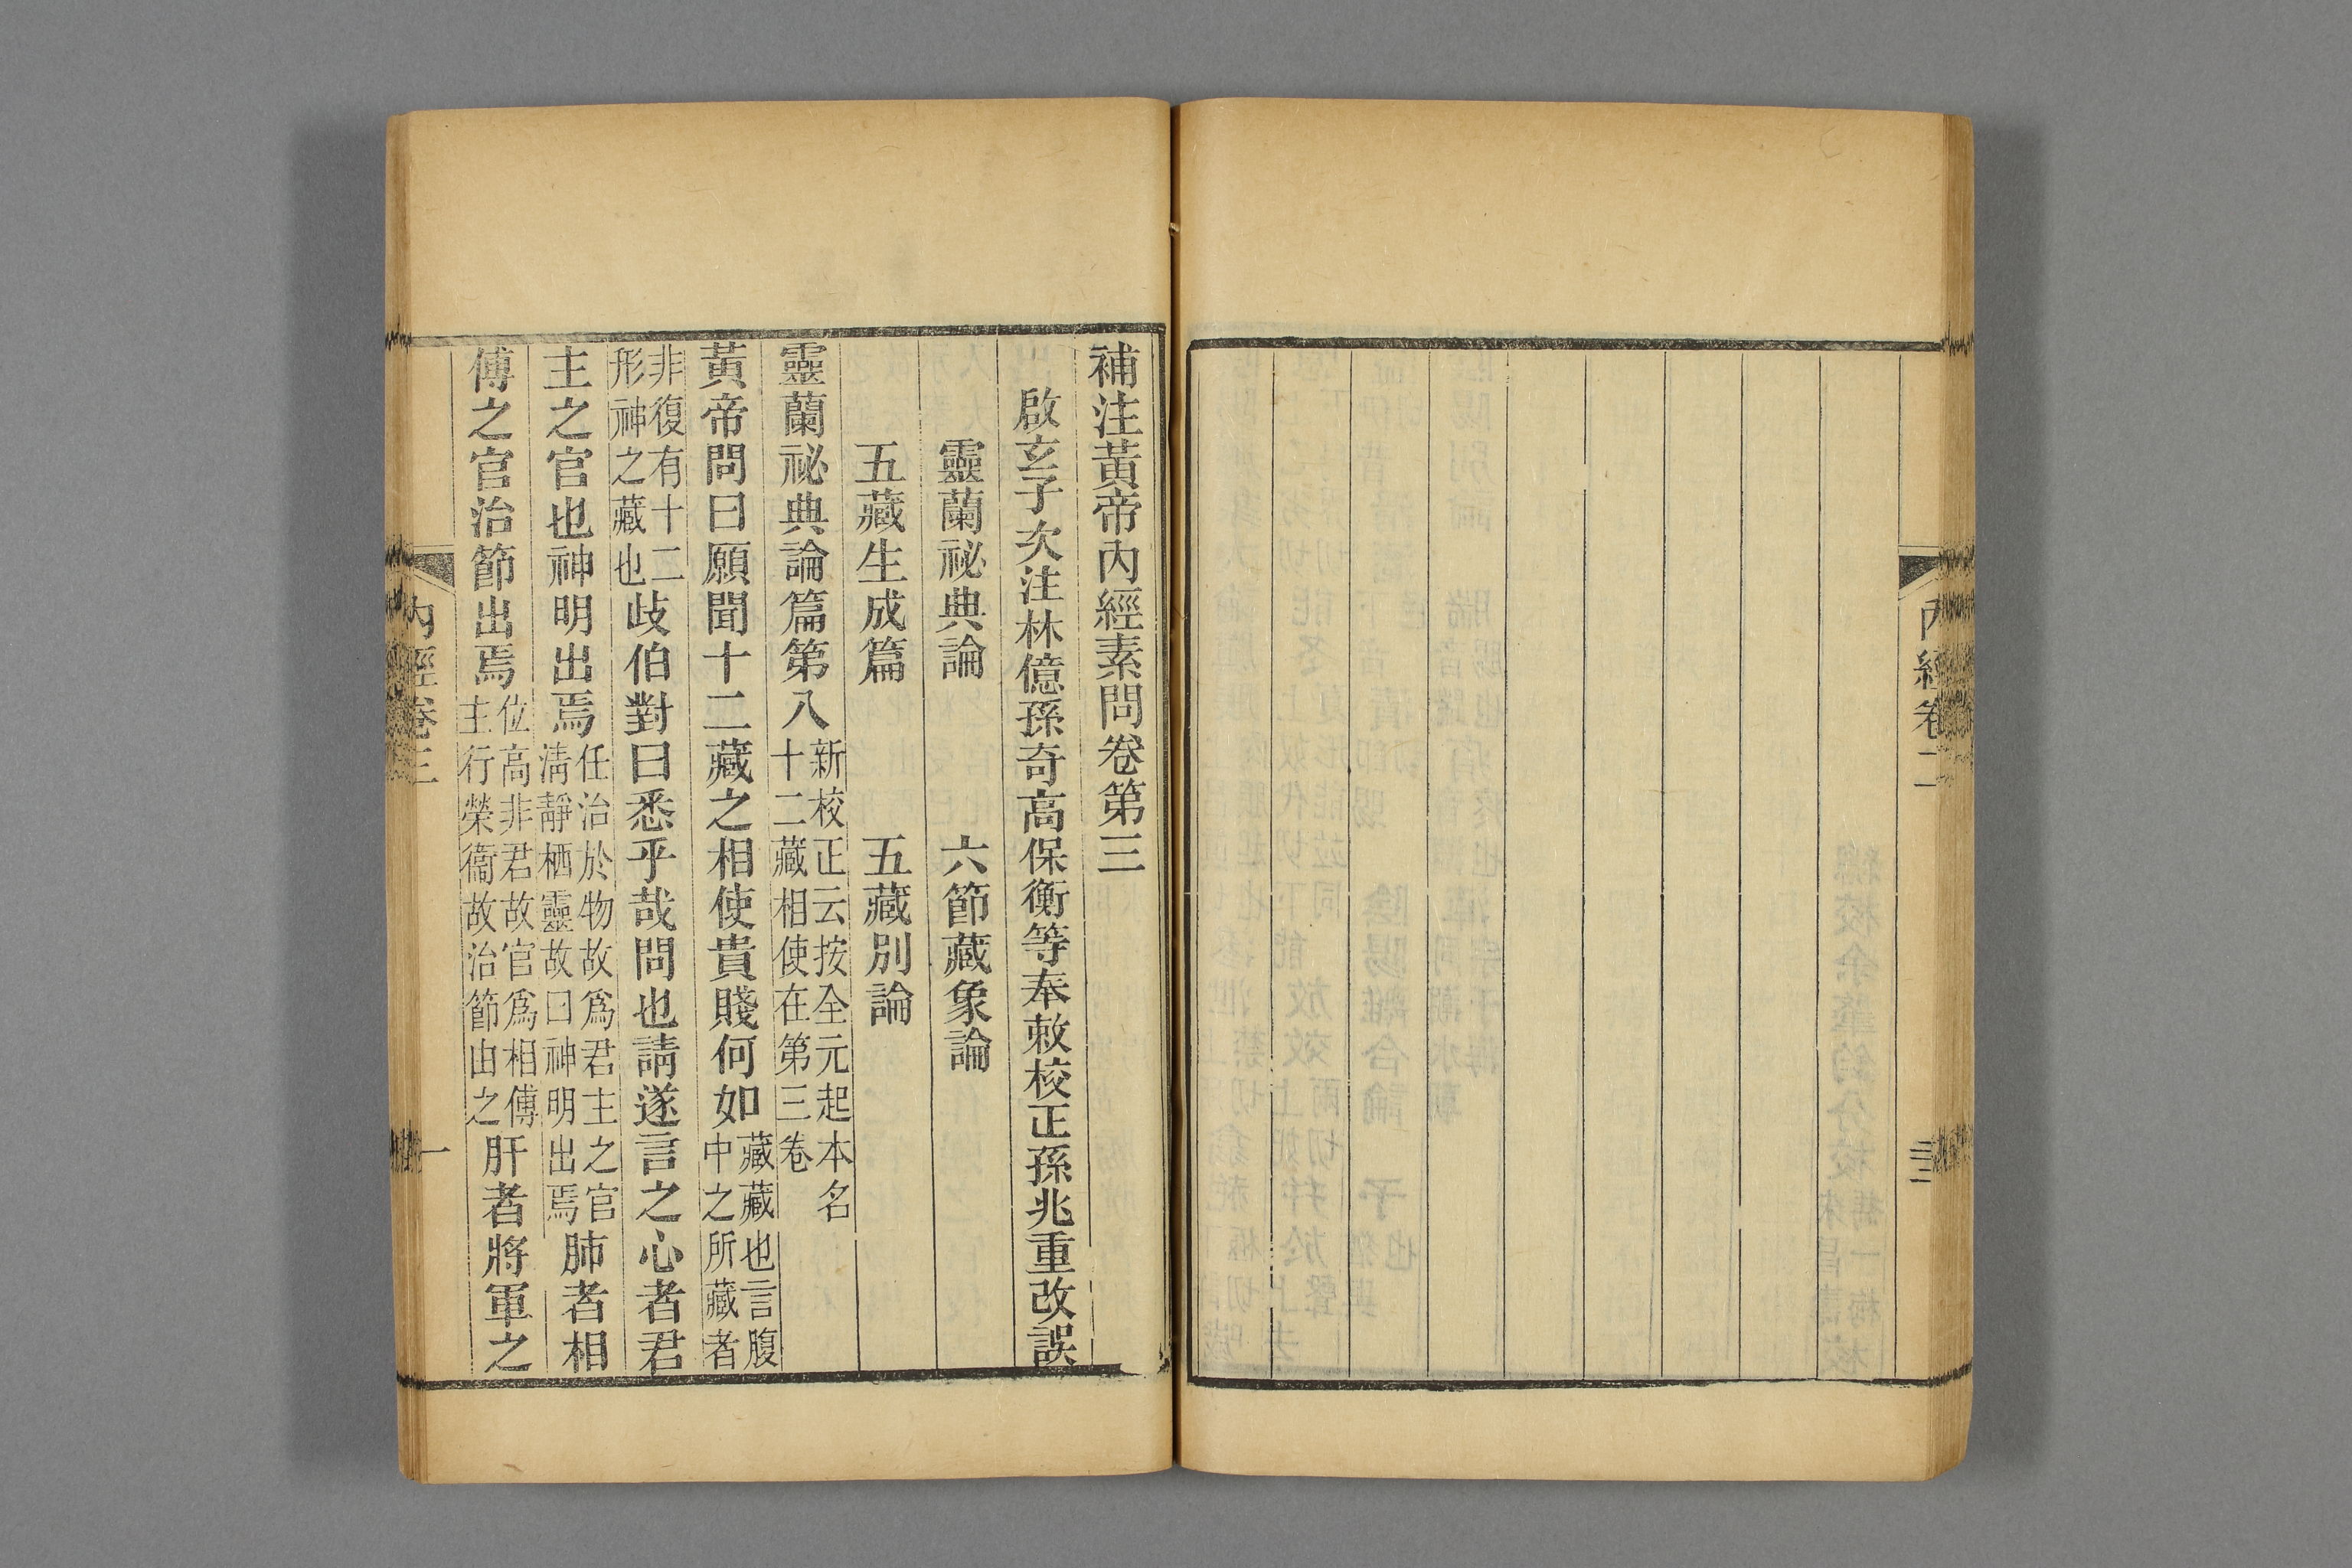 內經卷二
補注黃帝內經素問卷第三
啟玄子次注林億孫奇高保衡等奉敕校正孫兆重改誤
靈蘭祕典論　六節藏象論
五藏生成篇　五藏別論
靈蘭祕典論篇第八新校正云按全元起本名十二藏相使在第三卷
黃帝問曰願聞十二藏之相使貴賤何如藏藏也言腹中之所藏者
非復有十二形神之藏也歧伯對曰悉乎哉問也請遂言之心者君
主之官也神明出焉任治於物故為君主之官清靜栖靈故曰神明出焉肺者相
傅之官治節出焉位高非君故官為相傅主行榮衞故治節由之肝者將軍之
內經卷三　一